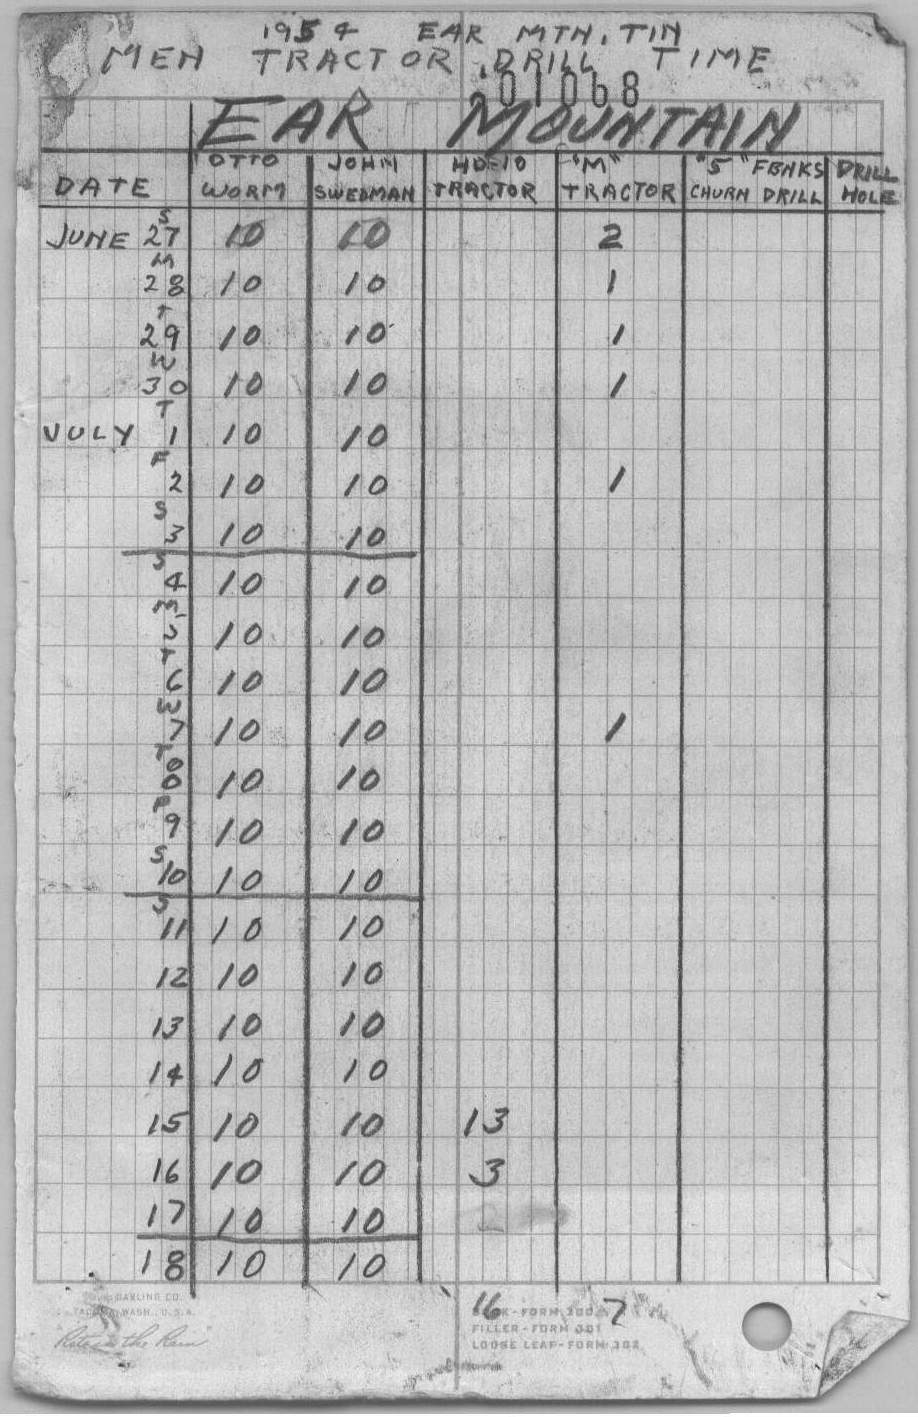 1954 EAR MTN. TIN
MEN TRACTOR, DRILL TIME
201068
EAR MOUNTAIN
DATE OTTO WORM JOHN SWEDMAN HD-10 TRACTOR "M" TRACTOR "5" FBNKS CHURN DRILL DRILL HOLE
JUNE S 27 10 10 2
M 28 10 10 1
T 29 10 10 1
W 30 10 10 1
JULY T 1 10 10
F 2 10 10 1
S 3 10 10
S 4 10 10
M 5 10 10
T 6 10 10
W 7 10 10 1
T 8 10 10
F 9 10 10
S 10 10 10
S 11 10 10
12 10 10
13 10 10
14 10 10
15 10 10 13
16 10 10 3
17 10 10
18 10 10
16 7
DARLING CO.
TACOMA, WASH., U.S.A.
"Rite in the Rain"
BOOK-FORM 300
FILLER-FORM 301
LOOSE LEAF-FORM 302